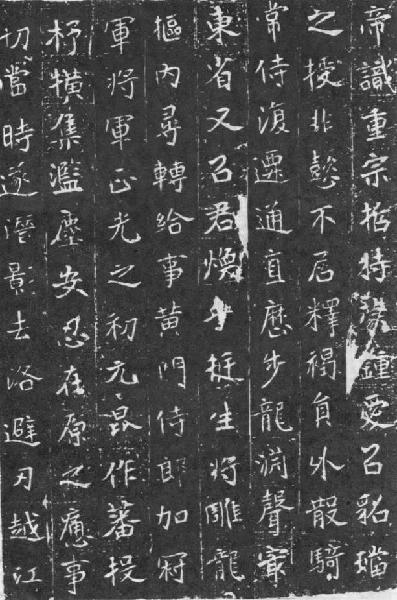 帝識重宗哲特深鍾愛以貂璫
之授非懿不居釋褐員外散騎
常侍復遷通直歷步龍淵聲最
東省又以君煥乎挺生將雕龍
樞内尋轉給事黃門侍郎加冠
軍將軍正光之初元昆作蕃投
杼橫集濫塵安忍在原之痛事
切當時遂潛影去洛避刃越江